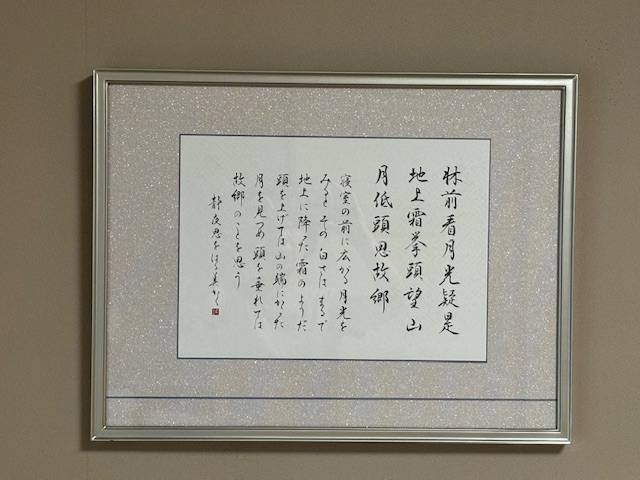 牀前看月光疑是
地上霜挙頭望山
月低頭思故郷
寝室の前に広がる月光を
みるとその白さはまるで
地上に降った霜のようだ
頭を上げては山の端にかかった
月を見つめ頭を垂れては
故郷のことを思う
静夜思をはる美かく